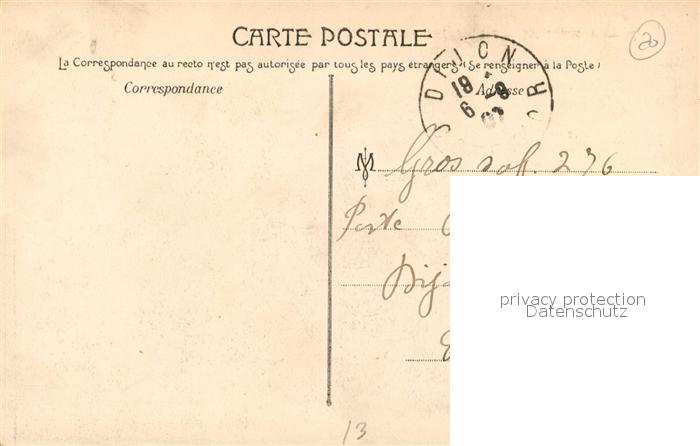 CARTE POSTALE
20
La Correspondance au recto n'est pas autorisée par tous les pays étrangers (Se renseigner à la Poste)
Correspondance
Adresse
DIJON
19
6
M
276
Poste
Dij
privacy protection
Datenschutz
13